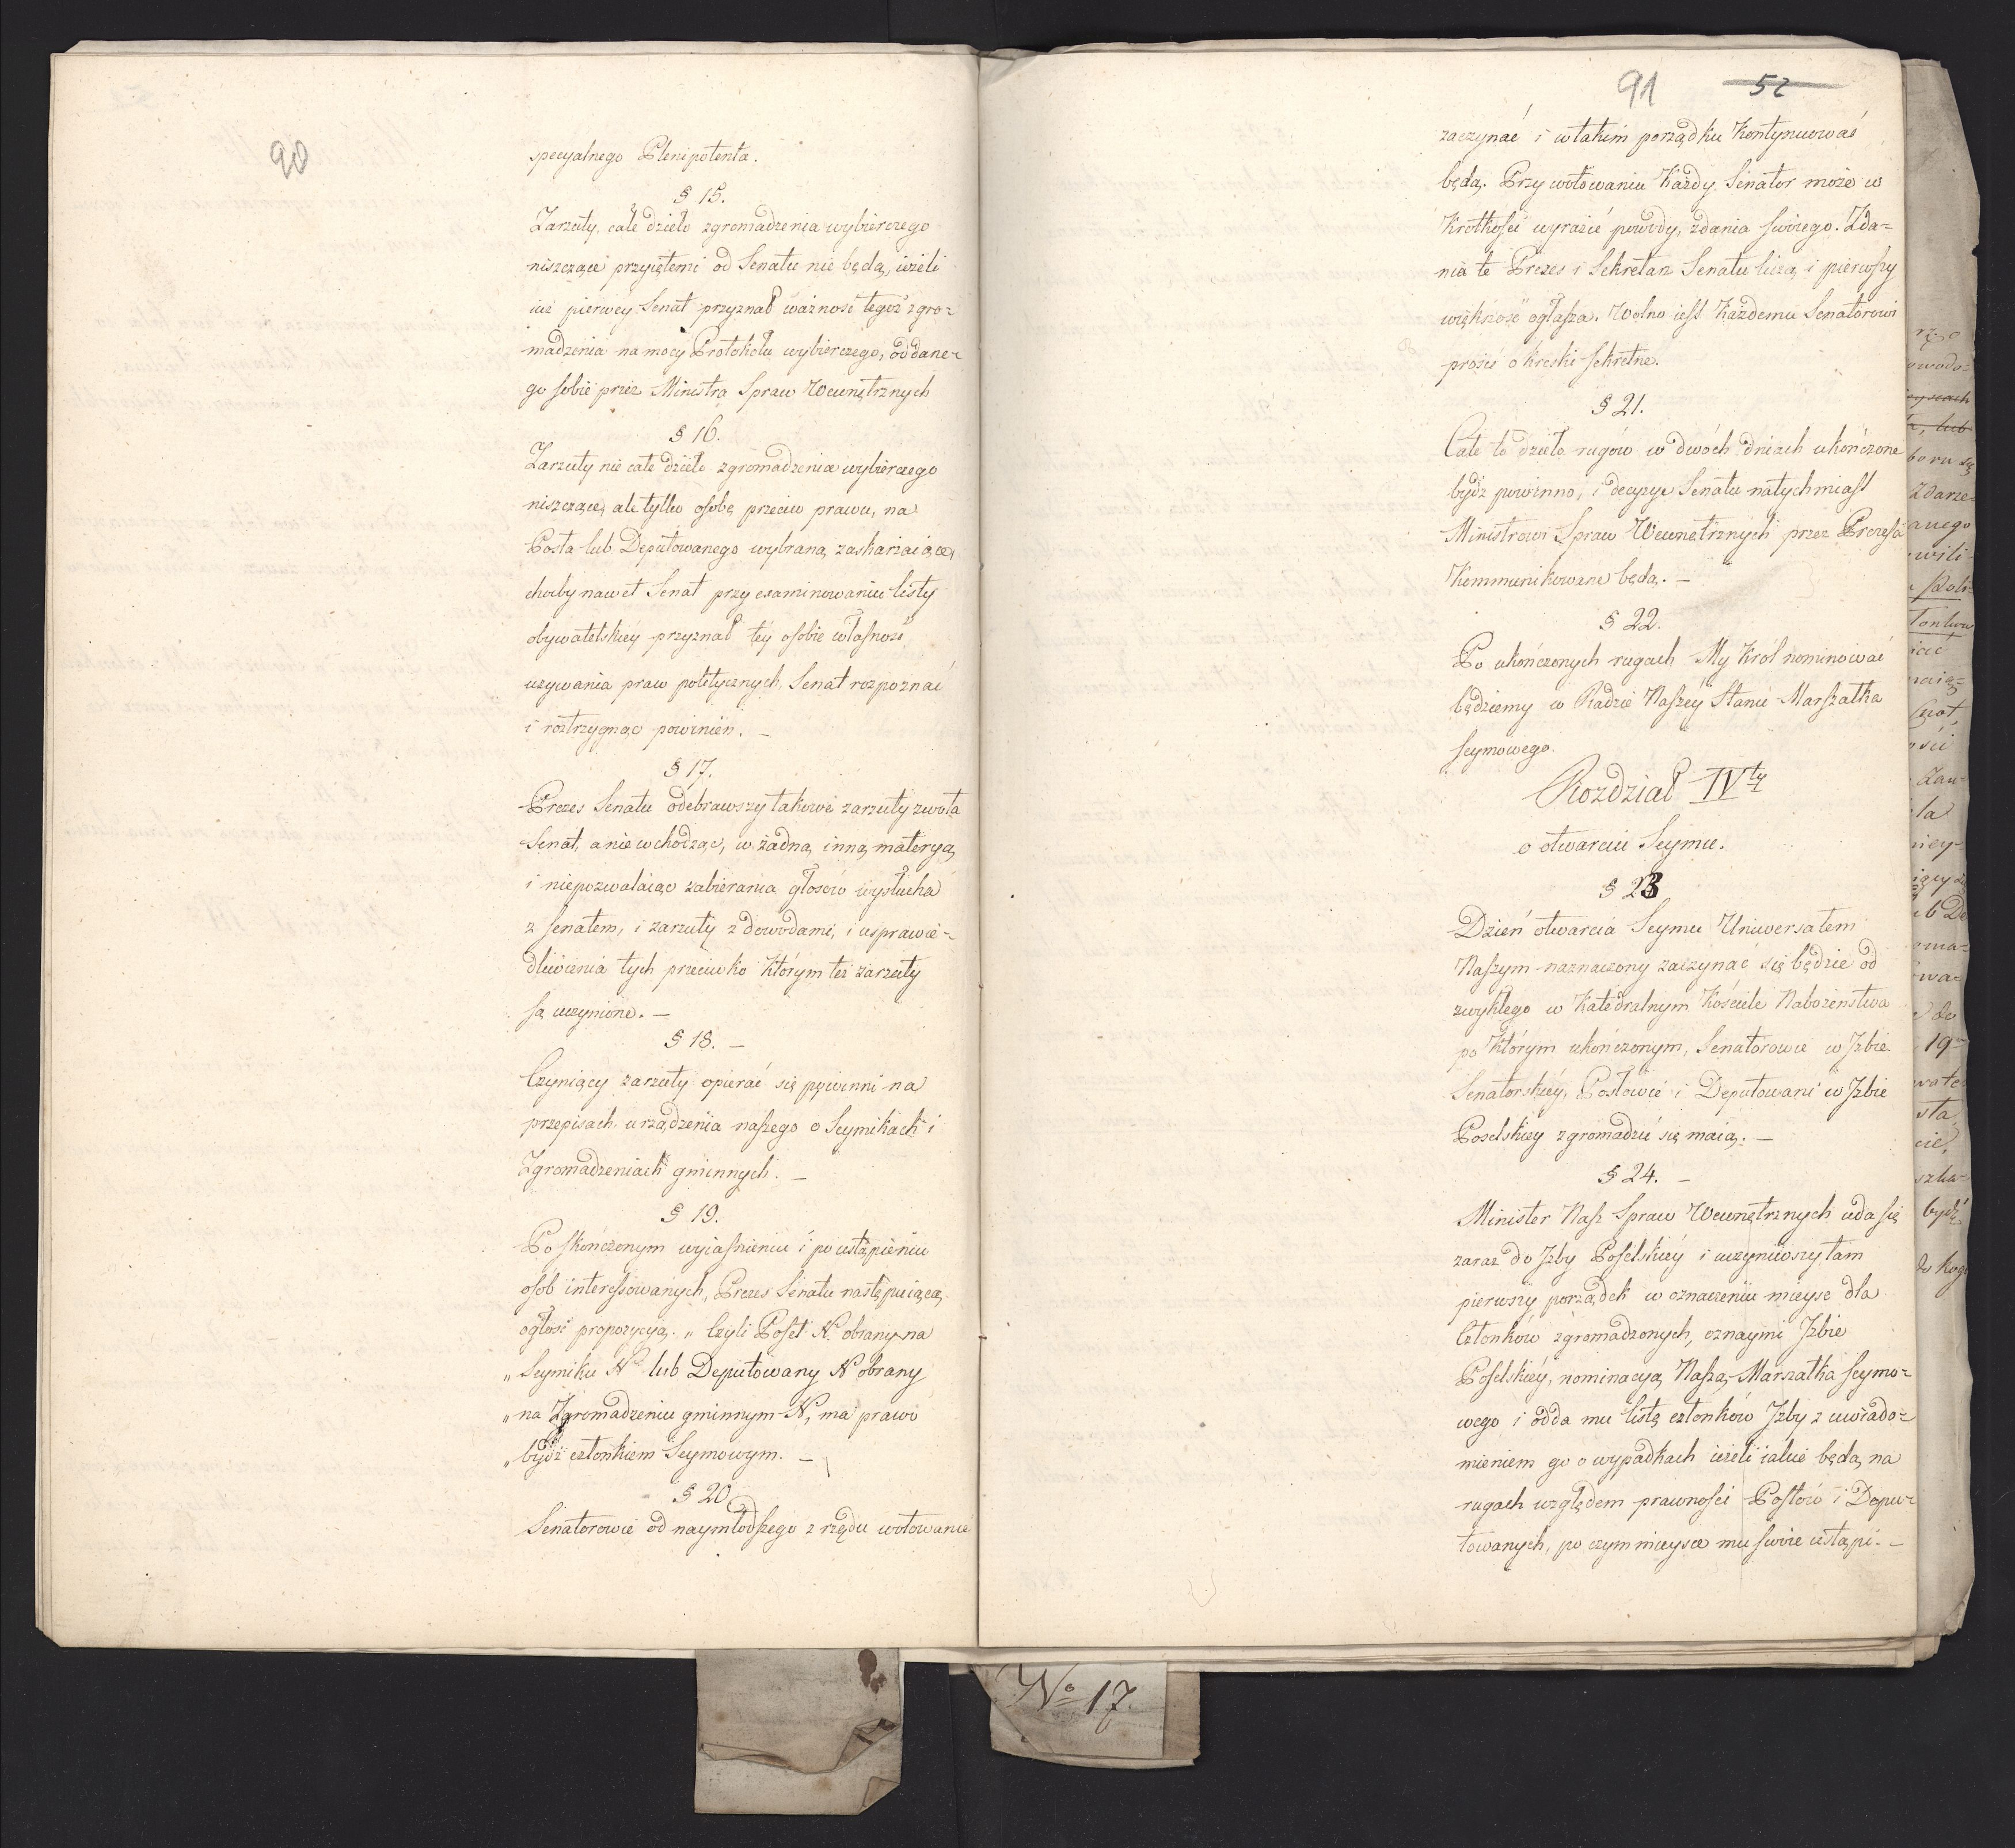 90
specyalnego Plenipotenta.
§ 15.
Zarzuty, całe dzieło zgromadzenia wybierczego
niszczące przyiętemi od Senatu nie będą, ieżeli
iuż pierwey Senat przyznał ważność tegoż zgro-
madzenia na mocy Protokołu wybierczego, oddane-
go sobie przez Ministra Spraw Wewnętrznych
§ 16.
Zarzuty nie całe dzieło zgromadzenia wybierczego
niszczące, ale tylko osobę przeciw prawu, na
Posła lub Deputowanego wybraną zaskarżaiące,
choćby nawet Senat przy examinowaniu listy
obywatelskiey przyznał tey osobie własność
używania praw politycznych, Senat rozpoznać
i roztrzygnąc powinien. —
§ 17.
Prezes Senatu odebrawszy takowe zarzuty zwoła
Senat, a nie wchodząc, w żadną inną materyą,
i niepozwalaiąc zabierania głosów wysłucha
z senatem, i zarzuty z dowodami, i usprawie-
dliwienia tych przeciwko którym też zarzuty
są uczynione. —
§ 18. —
Czyniący zarzuty opierać się powinni na
przepisach urządzenia naszego o Seymikach i
Zgromadzeniach gminnych. —
§ 19.
Po skończonym wyiaśnieniu i po ustąpieniu
osób interessowanych, Prezes Senatu następuiącą
ogłosi propozycyą. „ Czyli Poseł N. obrany na
„ Seymiku N. lub Deputowany N obrany
„ na Zgromadzeniu gminnym N, ma prawo
„ bydź członkiem Seymowym. —
§ 20
Senatorowie od naymłodszego z rzędu wotowanie
91 52
zaczynać i w takim porządku kontynuować
będą. Przy wotowaniu każdy Senator może w
krotkości wyrazić powody, zdania swoiego. Zda-
nia te Prezes i Sekretarz Senatu liczą, i pierwszy
większość ogłasza. Wolno iest każdemu Senatorowi
prosić o kreski sekretne.
§ 21.
Całe to dzieło rugów w dwóch dniach ukończone
bydź powinno, i decyzye Senatu natychmiast
Ministrowi Spraw Wewnętrznych przez Prezesa
kommunikowane będą. —
§ 22.
Po ukończonych rugach My Król nominować
będziemy w Radzie Naszey Stanu Marszałka
seymowego.
Rozdział IVty
o otwarciu Seymu.
§ 23
Dzień otwarcia Seymu Uniwersałem
Naszym naznaczony zaczynać się będzie od
zwykłego w Katedralnym Kościele Nabożeństwa
po którym ukończonym, Senatorowie w Izbie
Senatorskiey, Posłowie i Deputowani w Izbie
Poselskiey zgromadzić się maią. —
§ 24. —
Minister Nasz Spraw Wewnętrznych uda się
zaraz do Izby Poselskiey i uczyniwszy tam
pierwszy porządek w oznaczeniu mieysc dla
Członków zgromadzonych, oznaymi Izbie
Poselskiey, nominacyą Naszą Marszałka Seymo-
wego i odda mu listę członków Izby z uwiado-
mieniem go o wypadkach ieżeli iakie będą, na
rugach względem prawności Posłów i Depu-
towanych, po czym mieysce mu swoie ustąpi. —
No 17.